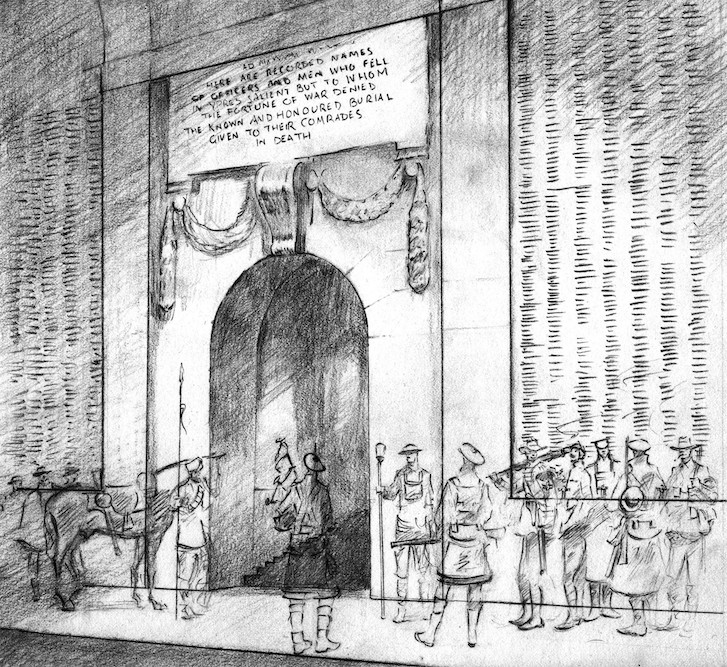 AD
HERE ARE RECORDED NAMES
OF OFFICERS AND MEN WHO FELL
IN YPRES SALIENT BUT TO WHOM
THE FORTUNE OF WAR DENIED
THE KNOWN AND HONOURED BURIAL
GIVEN TO THEIR COMRADES
IN DEATH